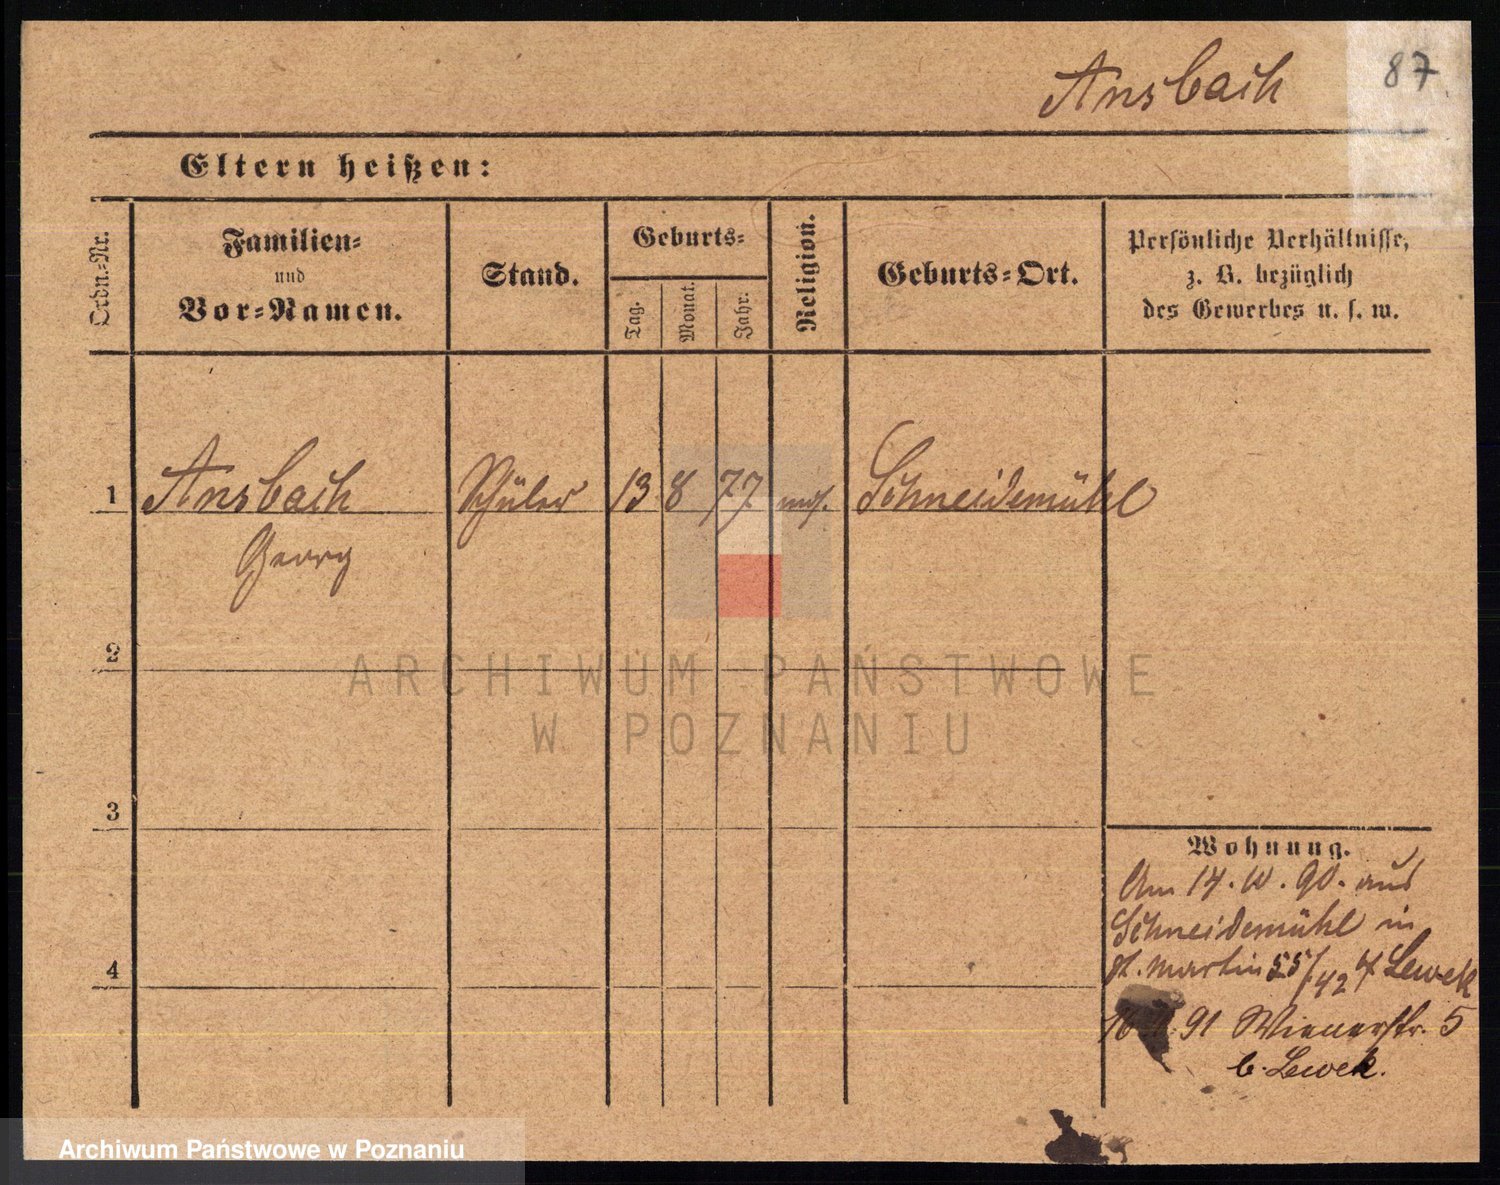 Ansbach
87
Eltern heißen:
Ordn.-Nr.
Familien-
und
Vor-Namen.
Stand.
Geburts-
Tag.
Monat.
Jahr.
Religion.
Geburts-Ort.
Persönliche Verhältnisse,
z. B. bezüglich
des Gewerbes u. s. w.
1 Ansbach Schüler 13 8 77 mos. Schneidemühl
Georg
2
3
4
Wohnung.
Am 14. 10. 90. aus
Schneidemühl in
St. Martin 55/42 Lewek
16 91 Wienerstr. 5
b. Lewek.
ARCHIWUM PAŃSTWOWE
W POZNANIU
Archiwum Państwowe w Poznaniu